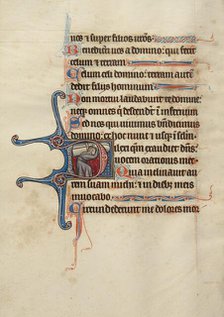 nos et super filios vestros
Benedicti vos a domino: qui fecit
celum et terram
Celum celi domino: terram autem
dedit filiis hominum
Non mortui laudabunt te domine:
neque omnes qui descendunt in infernum
Sed nos qui vivimus benedicimus
domino: ex hoc nunc et usque in seculum
ilexi quoniam exaudiet dominus:
vocem orationis mee
Quia inclinavit
aurem suam michi: et in diebus meis
invocabo
Circumdederunt me dolores mor